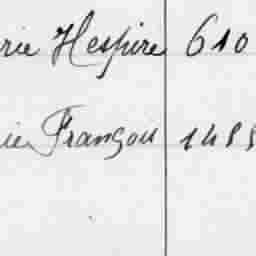 rie Hespire 610
ie François 1485